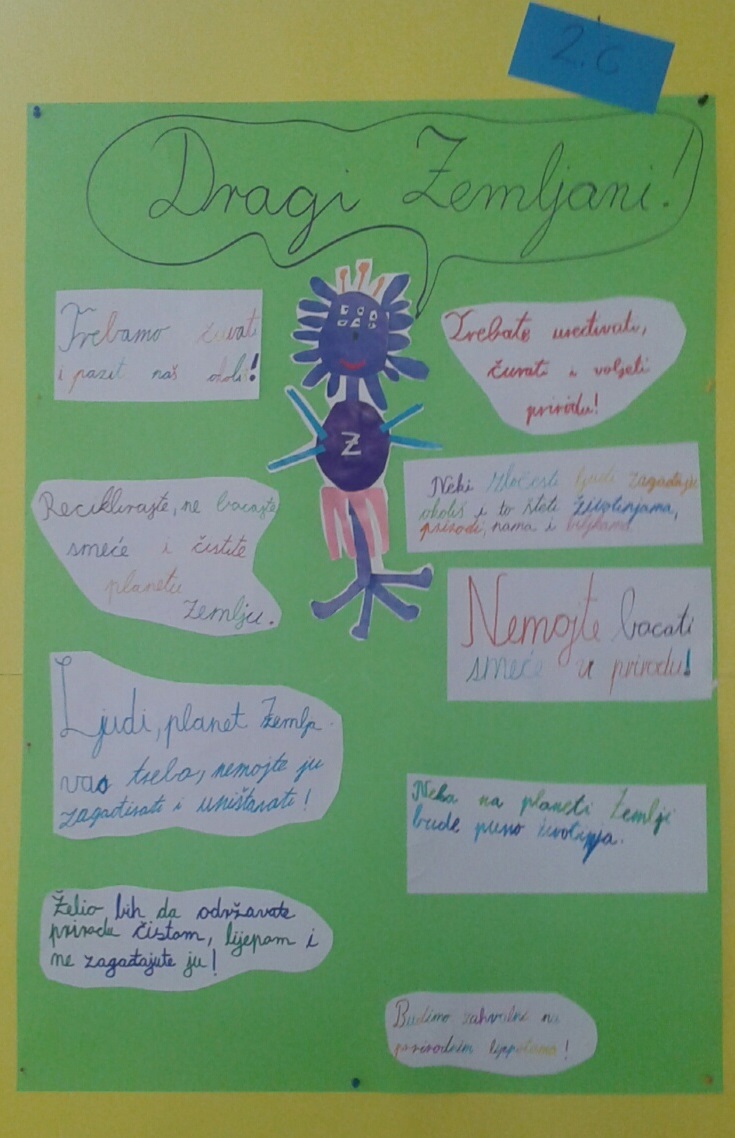 2.c
Dragi Zemljani!
Trebamo čuvati
i pazit naš okoliš!
Trebate uređivati,
čuvati i voljeti
prirodu!
Reciklirajte, ne bacajte
smeće i čistite
planetu
Zemlju.
Z
Neki zločesti ljudi zagađuju
okoliš i to šteti životinjama,
prirodi, nama i biljkama.
Nemojte bacati
smeće u prirodu!
Ljudi, planet Zemlja
vas treba, nemojte ju
zagađivati i uništavati!
Neka na planeti Zemlji
bude puno životinja.
Želio bih da održavate
prirodu čistom, lijepom i
ne zagađujete ju!
Budimo zahvalni na
prirodnim ljepotama!